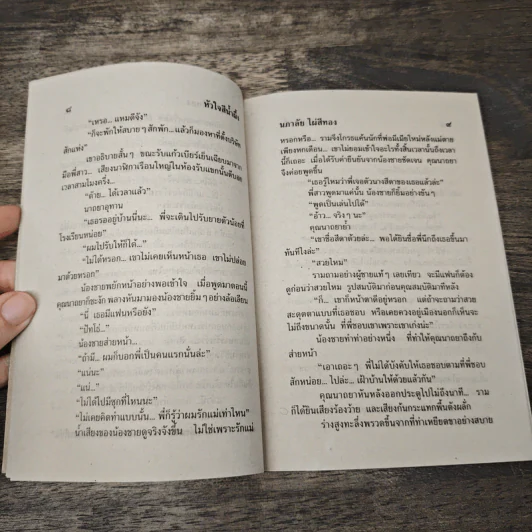 ๘
หัวใจสีน้ำเงิน
“เหรอ... แหมดีจัง”
“ก็จะพักให้สบาย ๆ สักพัก...แล้วก็มองหาที่ตั้งบริษัท
สักแห่ง”
เขาอธิบายสั้น ๆ ขณะรับแก้วเบียร์เย็นเฉียบมาจาก
มือพี่สาว... เสียงนาฬิกาเรือนใหญ่ในห้องรับแขกนั้นตีบอก
เวลาสามโมงครึ่ง...
“ต้าย... ได้เวลาแล้ว”
นาถยาอุทาน
“เธอรออยู่บ้านนี่นะ... พี่จะเดินไปรับยายตัวน้อยที่
โรงเรียนหน่อย”
“ผมไปรับให้ก็ได้...”
“ไม่ได้หรอก... เขาไม่เคยเห็นหน้าเธอ เขาไม่ปล่อย
มาด้วยหรอก”
น้องชายพยักหน้าอย่างพอเข้าใจ เมื่อพูดมาตอนนี้
คุณนาถยาก็ชะงัก พลางหันมามองน้องชายยิ้ม ๆ อย่างล้อเลียน
“นี่ เธอมีแฟนหรือยัง”
“ปัทโธ่...”
น้องชายส่ายหน้า...
“ถ้ามี... ผมก็บอกพี่เป็นคนแรกนั่นล่ะ”
“แน่นะ”
“แน่...”
“ไม่ได้ไปมีซุกที่ไหนนะ”
“ไม่เคยคิดทำแบบนั้น... พี่ก็รู้ว่าผมรักแม่เท่าไหน”
น้ำเสียงของน้องชายดูจริงจังขึ้น ไม่ใช่เพราะรักแม่
นภาลัย ไผ่สีทอง
๙
หรอกหรือ... รามจึงโกรธแค้นนักที่พ่อมีเมียใหม่หลังแม่ตาย
เพียงหกเดือน... เขาไม่ยอมเข้าใจอะไรทั้งสิ้นเวลานั้นถึงเวลา
นี้ก็เถอะ เมื่อได้รับคำยืนยันจากน้องชายชัดเจน คุณนาถยา
จึงค่อยพูดขึ้น
“เธอรู้ไหมว่าพี่เจอตัวนางสีดาของเธอแล้วล่ะ”
พี่สาวพูดมาแค่นั้น น้องชายก็ยิ้มอย่างขัน ๆ
“พูดเป็นเล่นไปได้”
“อ้าว... จริง ๆ นะ”
คุณนาถยาย้ำ
“เขาชื่อสีดาด้วยล่ะ... พอได้ยินชื่อพี่นึกถึงเธอขึ้นมา
ทันทีไงล่ะ”
“สวยไหม”
รามถามอย่างผู้ชายแท้ ๆ เลยเทียว จะมีแฟนก็ต้อง
ดูก่อนว่าสวยไหม รูปสมบัติมาก่อนคุณสมบัติมาทีหลัง
“ก็... เขาก็หน้าตาดีอยู่หรอก แต่ถ้าจะถามว่าสวย
สะดุดตาแบบที่เธอชอบ หรือเคยควงอยู่เมืองนอกก็เห็นจะ
ไม่ถึงขนาดนั้น ที่พี่ชอบเขาเพราะเขาเก่งน่ะ”
น้องชายทำท่าอย่างหนึ่ง ที่ทำให้คุณนาถยาถึงกับ
ส่ายหน้า
“เอาเถอะ ๆ พี่ไม่ได้บังคับให้เธอชอบตามที่พี่ชอบ
สักหน่อย...ไปล่ะ... เฝ้าบ้านให้ด้วยแล้วกัน”
คุณนาถยาหันหลังออกประตูไปไม่ถึงนาที... ราม
ก็ได้ยินเสียงร้องว้าย และเสียงก้นกระแทกพื้นดังผลั่ก
ร่างสูงทะลึ่งพรวดขึ้นจากที่ทำเหยียดขาอย่างสบาย